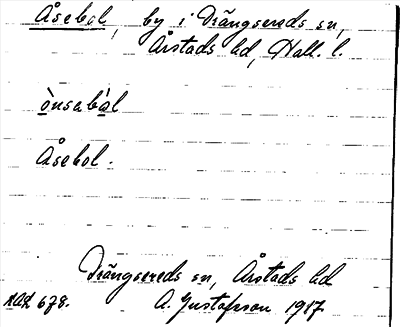 Åsebol, by i Drängsereds sn,
Årstads hd, Hall. l.
ònsabàl
Åsebol.
Drängsereds sn, Årstads hd
678. A. Gustafsson 1917